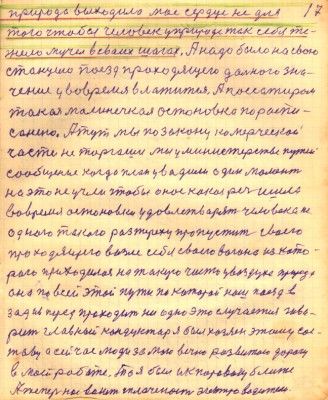 природа выходило мое сердце не для 17
того чтобы человек у природи так себя тя-
жело мучел в своих шагах. А надо было на свою
станцию поезд проходящего дального зна-
чение у вовремя влатится. А пассажиром
такая малинечкая остоновка по распи-
санию. А тут мы по закону комерческой
части не торгаши мы у министерстве путей
сообщение когда план уводили один момент
на это не учли чтобы оное какая реч ишла
вовремя остоновки удовлетварят человека не
одного такого разтриху пропустит своего
проходящего возле себя своего вогона на кото-
рого приходился на такую чисту у воздухе природу
она по всей этой пути по которой наш поезд в
зад и у перед проходит ни одно это случается гово-
рит главный кондуктар я был хозяен этаму сос-
таву а сейчас люди за мою вечно развитою дорогу
в моей работе. То я был и к паровозу ближе
А теперь нас возит оплаченость электровозител.